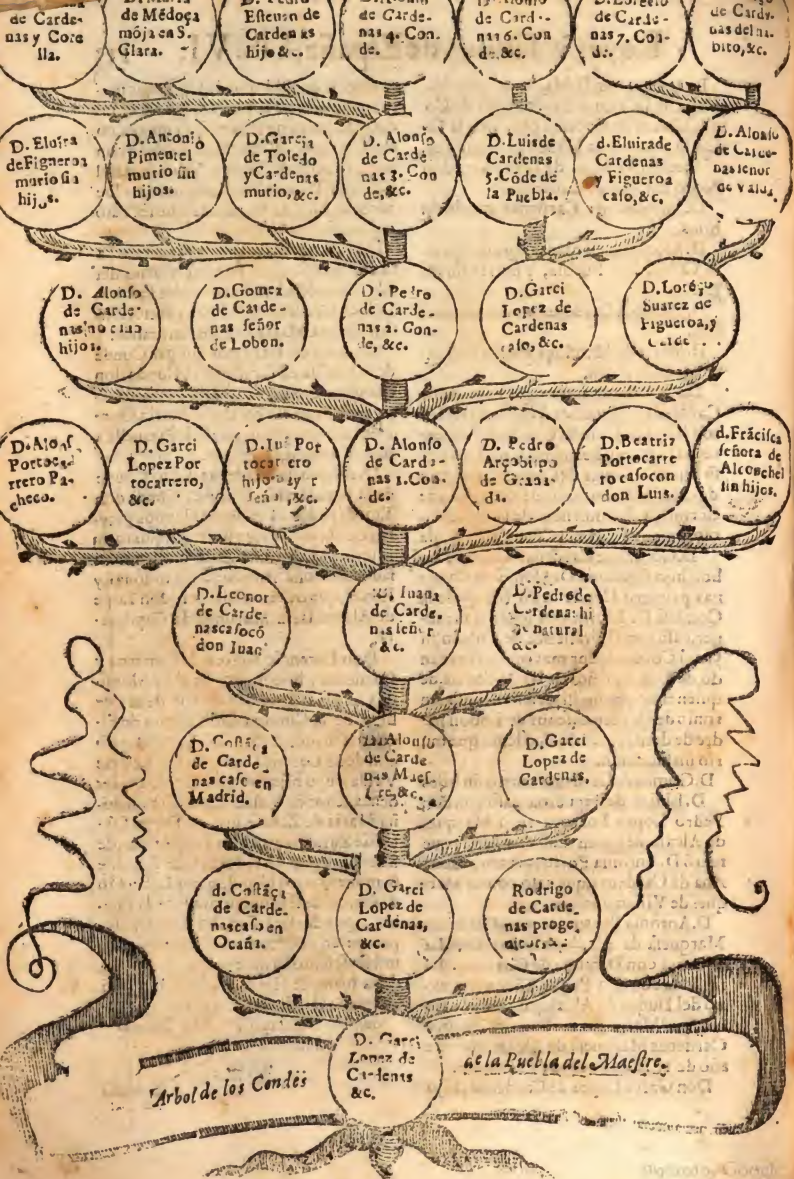 de Carde-
nas y Core
lla.
de Médoça
mója en S.
Clara.
Esteuan de
Cardenas
hijo &c.
de Carde-
nas 4. Con-
de.
de Card--
nas 6. Con
de. &c.
de Carde-
nas 7. Con-
de.
de Carde-
nas del ha-
bito, &c.
D. Eluira
de Figueroa
murio sin
hijos.
D. Antonio
Pimentel
murio sin
hijos.
D. Garcia
de Toledo
y Cardenas
murio, &c.
D. Alonso
de Carde
nas 3. Con
de, &c.
D. Luis de
Cardenas
5. Códe de
la Puebla.
d. Eluira de
Cardenas
y Figueroa
caso, &c,
D. Alonso
de Carde-
nas señor
de Valda
D. Alonso
de Carde-
nas no tuuo
hijos.
D. Gomez
de Carde-
nas señor
de Lobon.
D. Pedro
de Carde-
nas 2. Con-
de, &c.
D. Garci
Lopez de
Cardenas
caso, &c.
D. Loréço
Suarez de
Figueroa, y
Carde
D. Alonf.
Portocar
rrero Pa-
checo.
D. Garci
Lopez Por
tocarrero,
&c.
D. Iu Por
tocarrero
hijo y
&c.
D. Alonso
de Carde-
nas 1. Con-
de.
D. Pedro
Arçobispo
de Grana-
da.
D. Beatriz
Portocarre
ro caso con
don Luis.
d. Fràcisca
señora de
Alconchel
sin hijos.
D. Leonor
de Carde-
nas caso có
don Iuan
D. Iuana
de Carde-
nas señor
&c.
D. Pedro de
Cardenas hi
jo natural
&c.
D. Costáça
de Carde-
nas caso en
Madrid.
D. Alonso
de Carde
nas Maes-
tre, &c.
D. Garci
Lopez de
Cardenas,
d. Costáça
de Carde-
nas caso en
Ocaña.
D. Garci
Lopez de
Cardenas,
&c.
Rodrigo
de Carde-
nas proge-
nitor
D. Garci
Lopez de
Cardenas
&c,
Arbol de los Condes
de la Puebla del Maestre.